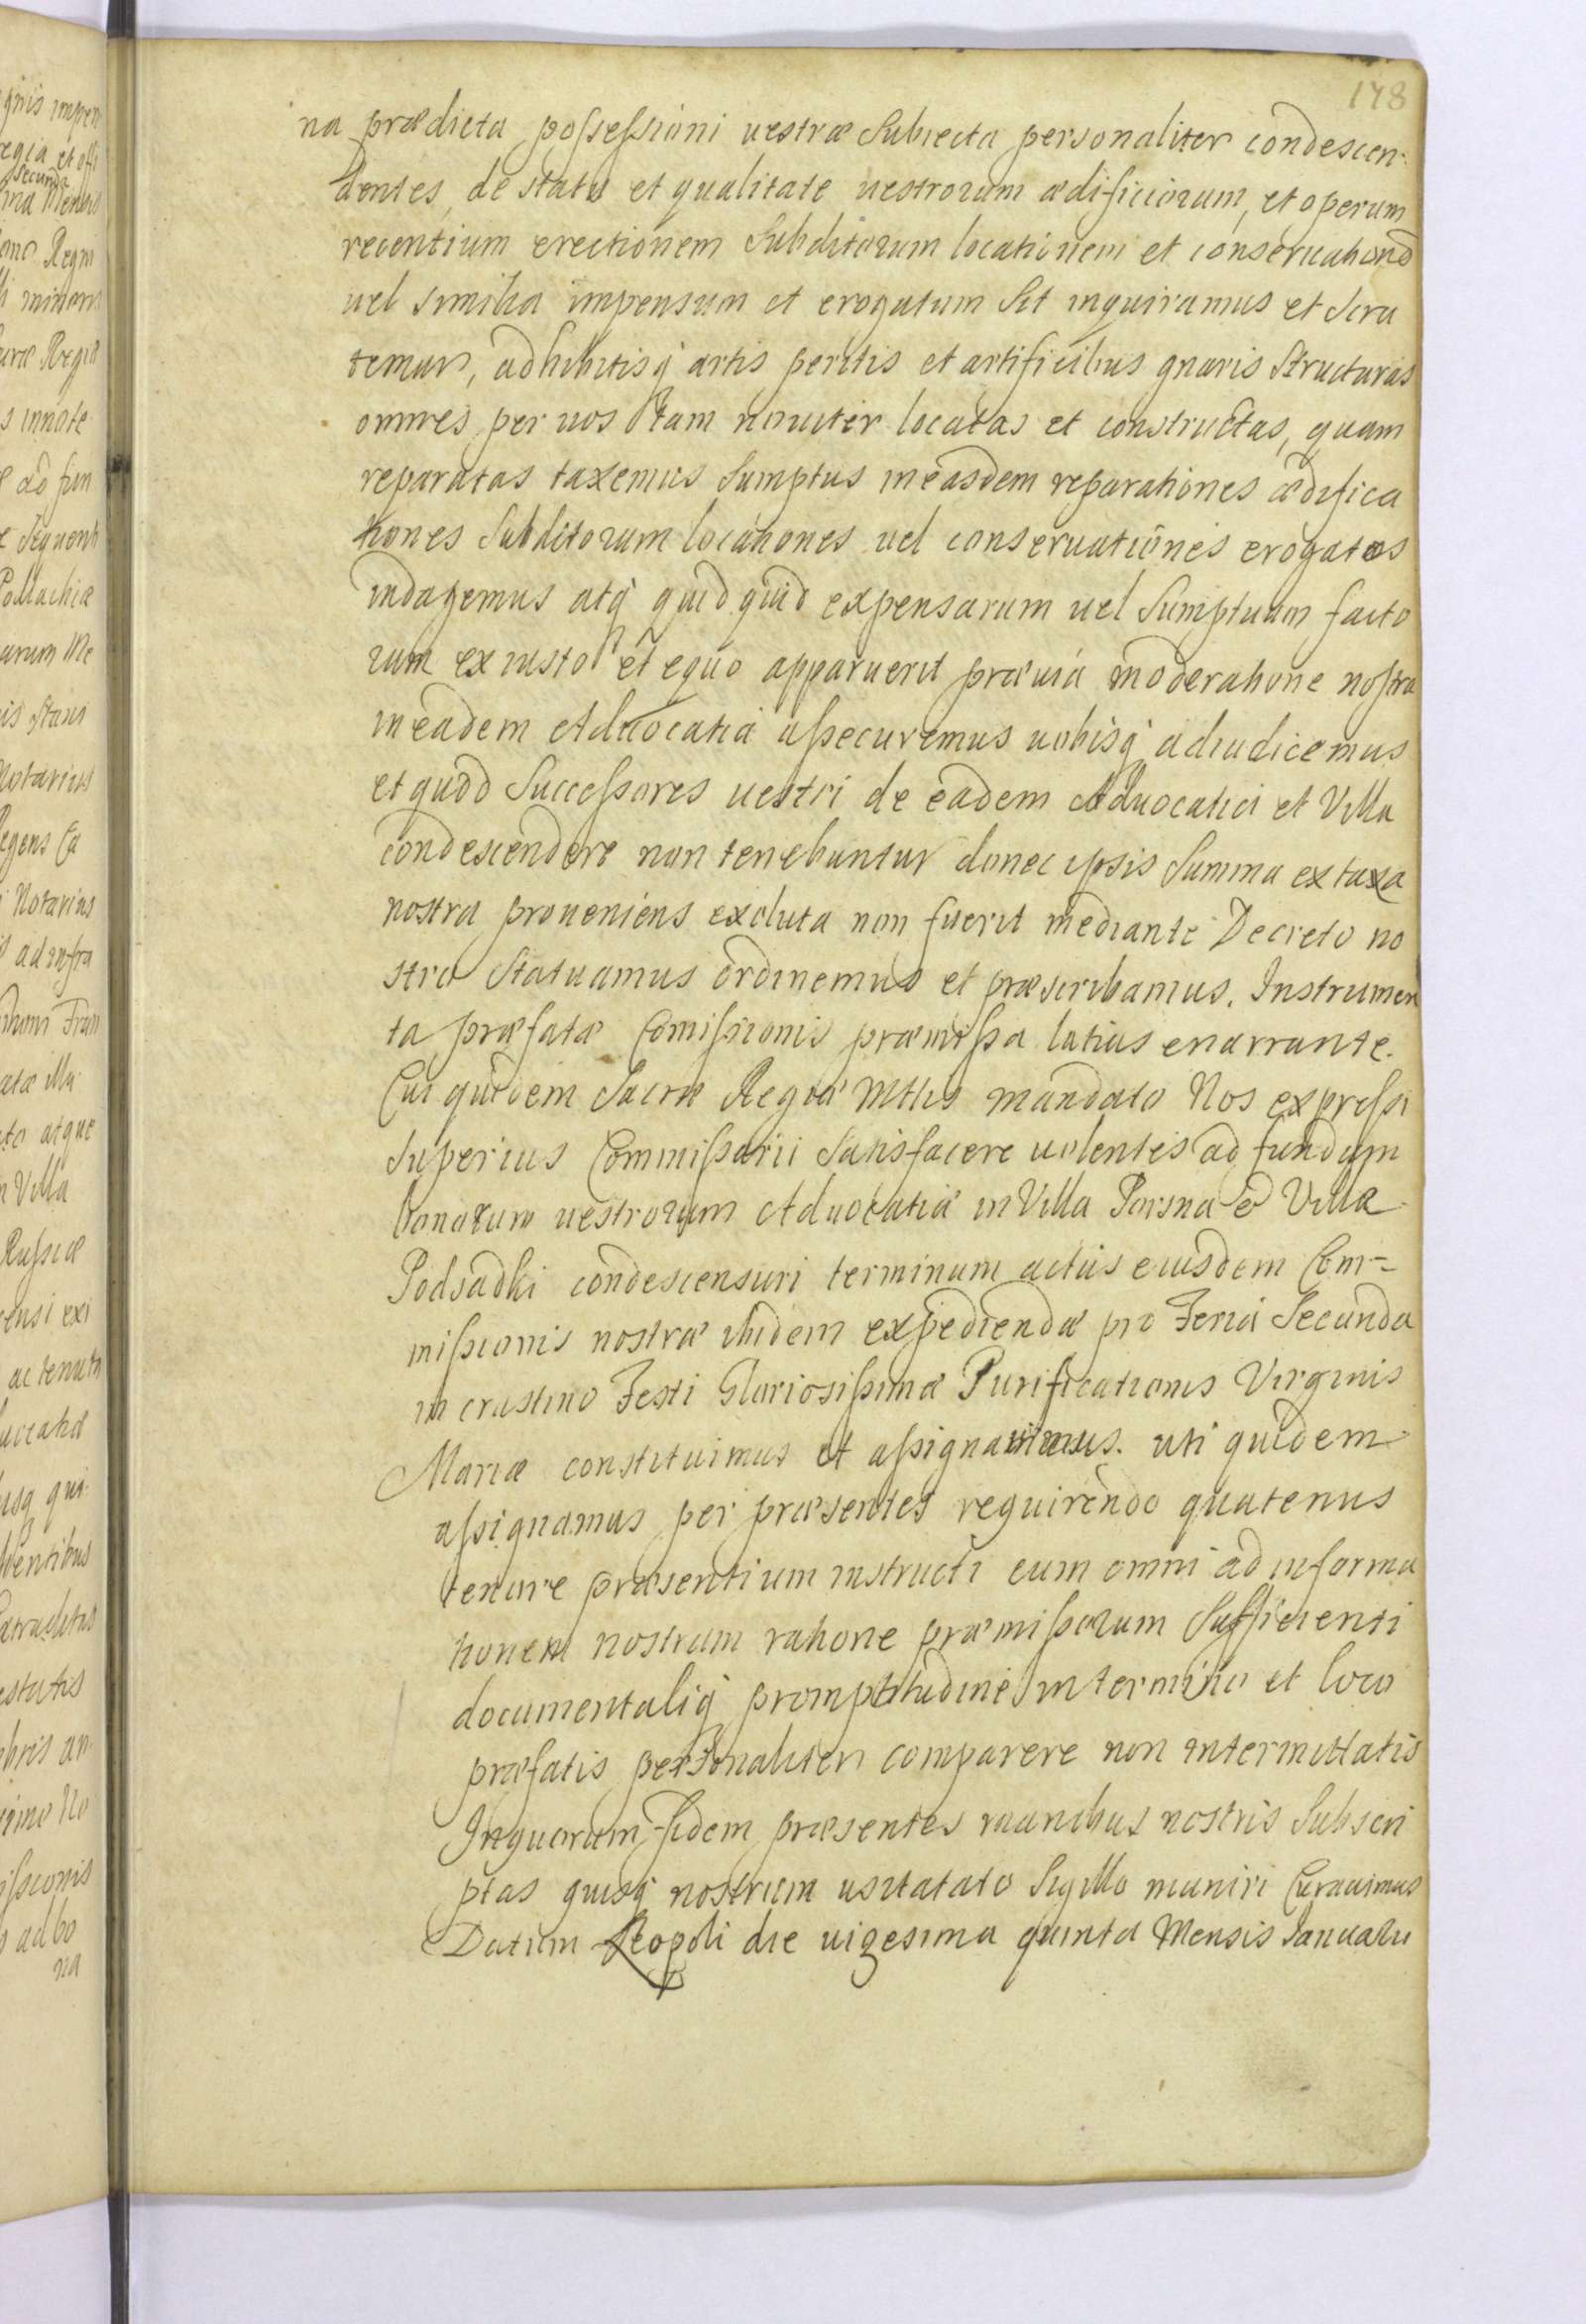 178
na prædicta possessioni uestræ Subiecta personaliter condescen-
dentes, de statu et qualitate uestrorum ædificiorum, et operum
recentium erectionem Subditorum locationem et conseruationẽ
uel similia impensum et erogatum Sit inquiramus et Scru
temur, adhibitisq artis peritis et artificibus gnaris Structuras
omnes per uos tam nouiter locatas et constructas, quam
reparatas taxemus Sumptus in easdem reparationes ædifica
tiones Subditorum locationes uel conseruationes erogatos
indagemus atq quid quid expensarum uel Sumptuum facto
rum ex iusto et equo apparuerit præuia moderatione nostra
in eadem Aduocatia assecuremus uobisq adiudicemus
et quod Successores uestri de eadem Aduocatia et Villa
condescendere non tenebuntur donec ipsis Summa ex taxa
nostra proueniens exoluta non fuerit mediante Decreto no
stro Statuamus ordinemus et præscribamus. Instrumen
ta præfatæ Comissionis præmissa latius enarrante.
Cui quidem Sacræ Regiæ Mttis mandato Nos expressi
Superius Commissarii Satisfacere uolentes ad fundum
bonorum uestrorum Aduocatiæ in Villa Porsna et Villa
Podsadki condescensuri terminum actus eiusdem Com-
missionis nostræ ibidem expediendæ pro Feria Secunda
in crastino Festi Gloriosissimæ Purificationis Virginis
Mariæ constituimus et assignauimus. uti quidem
assignamus per præsentes requirendo quatenus
tenore præsentium instructi cum omni ad informa
tionem nostram ratione præmissorum Sufficienti
documentaliq promptitudine in termino et loco
præfatis personaliter comparere non intermittatis
In quorum fidem præsentes manibus nostris Subscri
ptas quisq nostrum usitatato Sigillo muniri Curauimus
Datum Leopoli die uigesima quinta Mensis Januarii